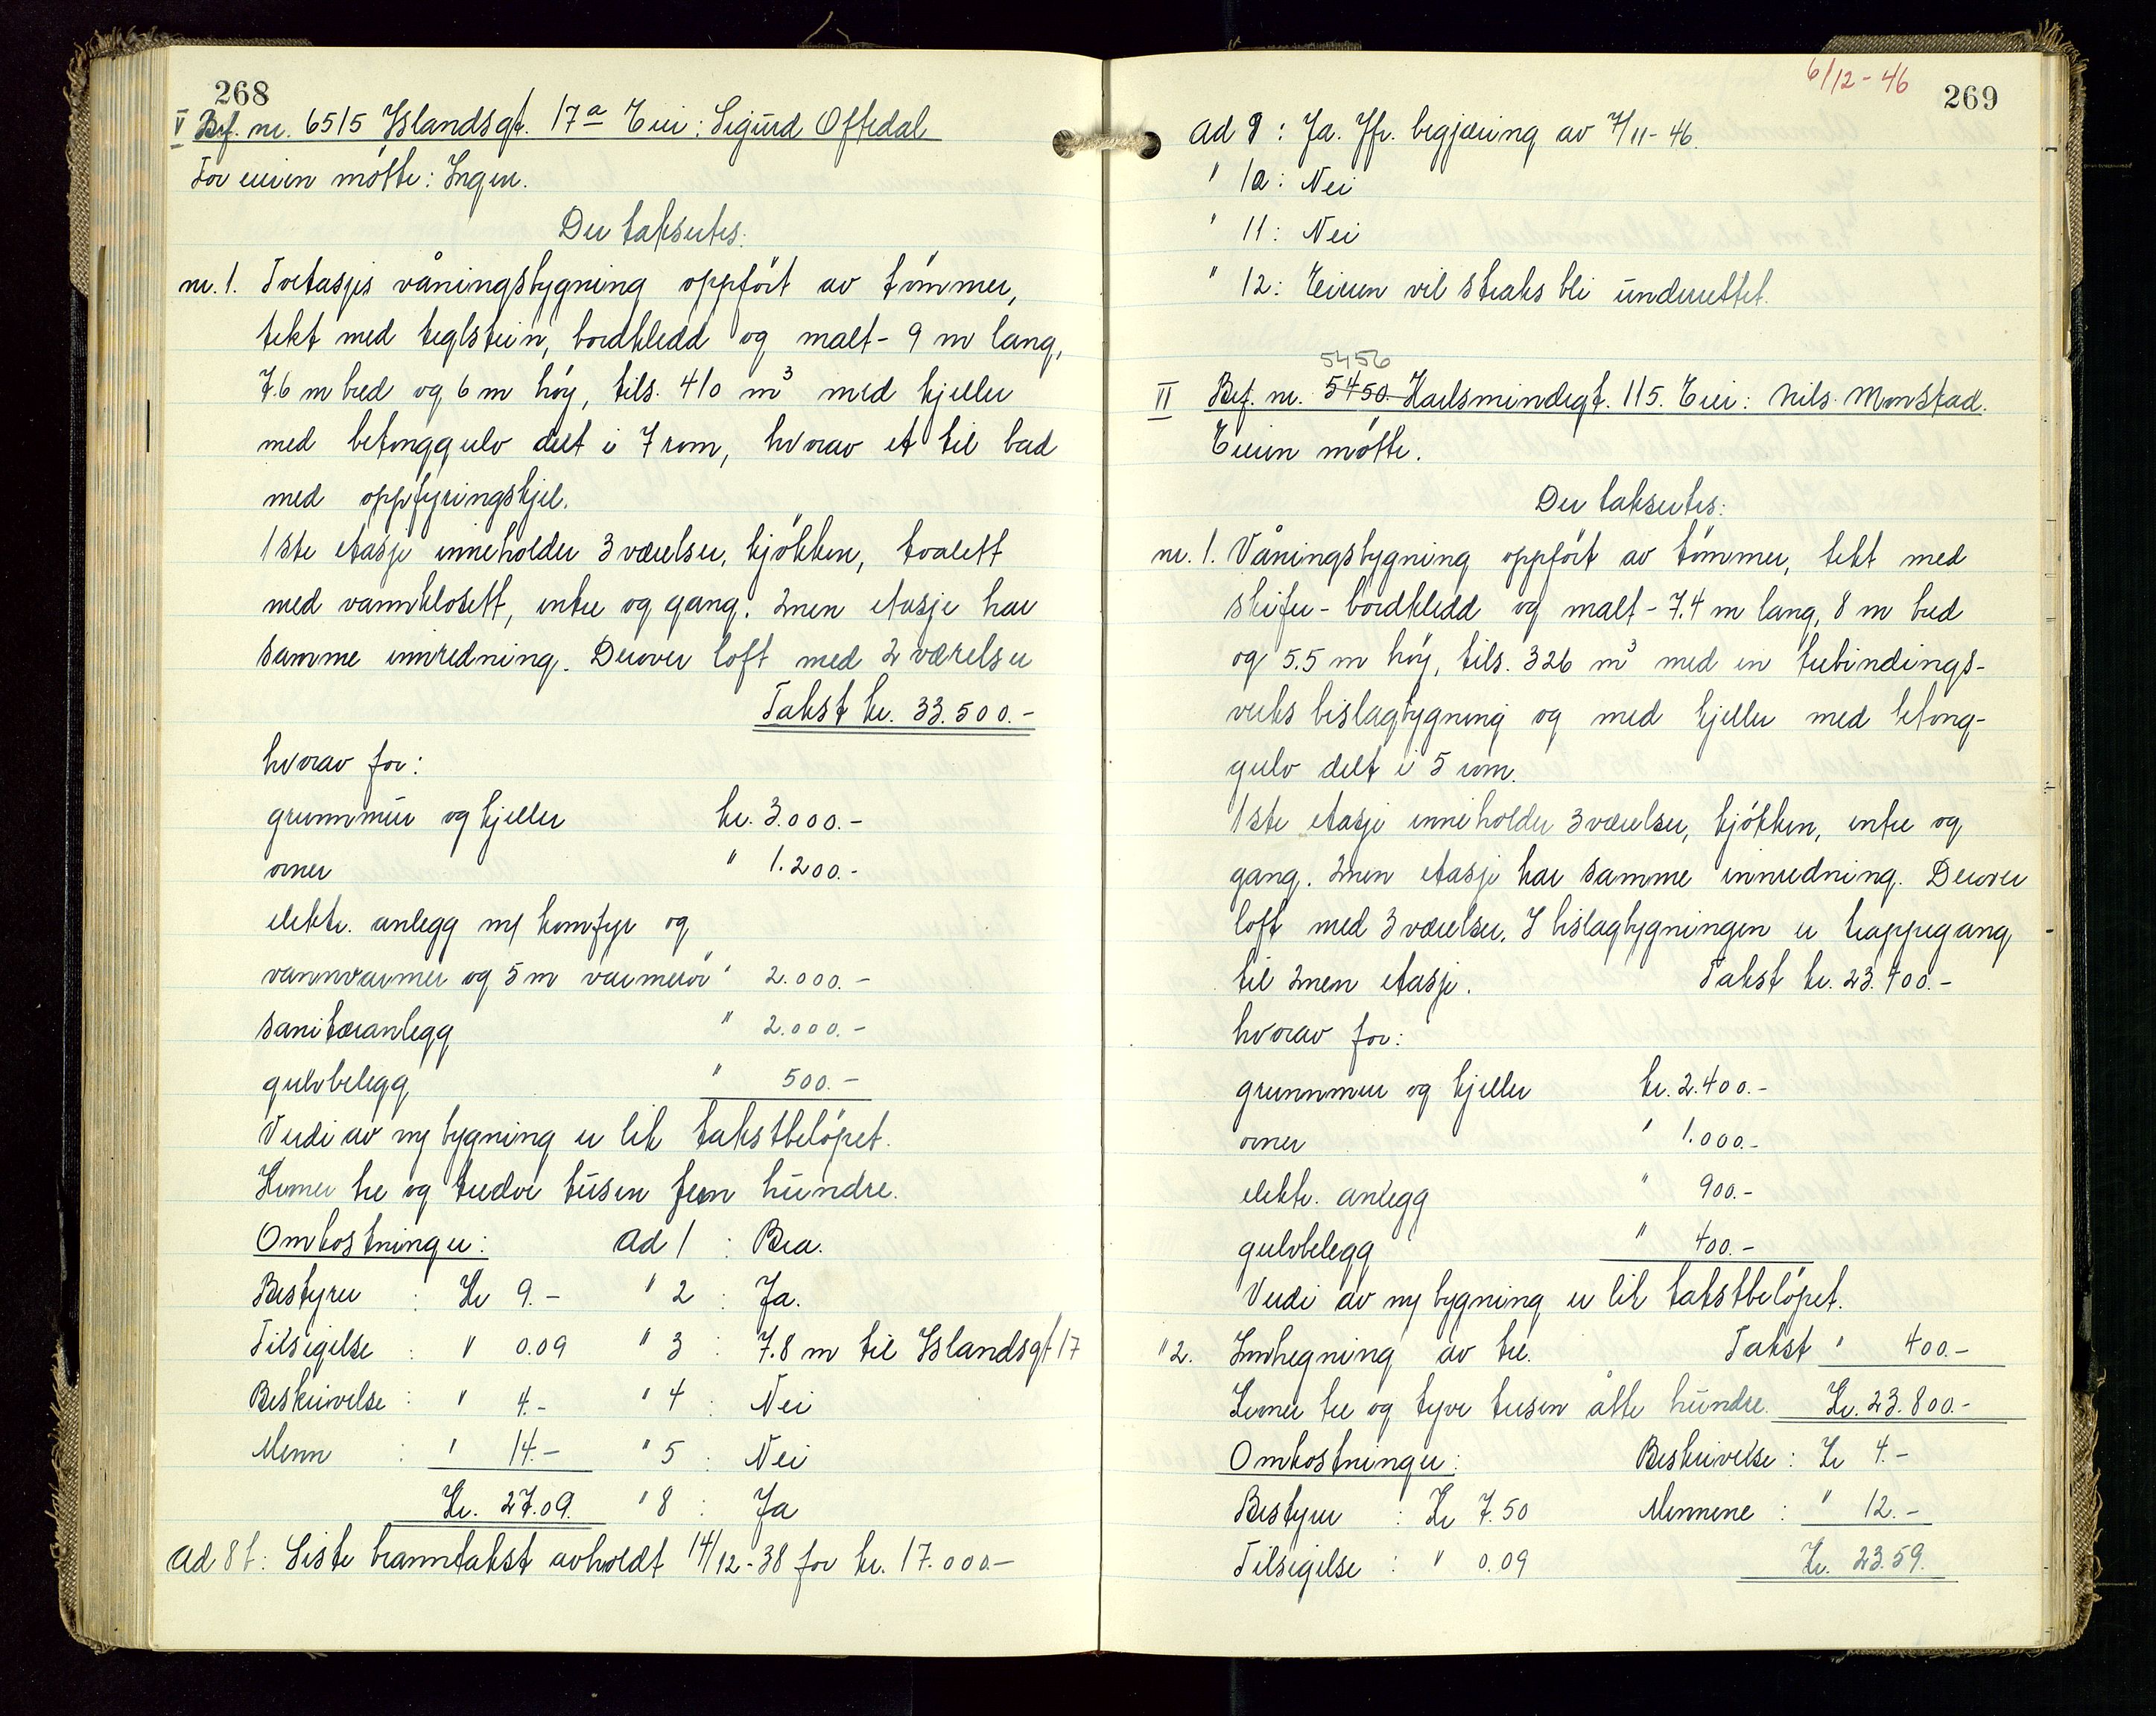 268
V Brf. nr. 6515 Islandsgt. 17a Eier: Sigurd Oftedal
For eieren møtte: Ingen.
Der takseres:
nr. 1. Toetasjes våningsbygning oppført av tømmer,
tekt med teglstein, bordkledd og malt - 9 m lang,
7.6 m bred og 6 m høy, tils. 410 m³ med kjeller
med betonggulv delt i 7 rom, hvorav et til bad
med oppfyringskjel.
1ste etasje inneholder 3 værelser, kjøkken, toalett
med vannklosett, entre og gang. 2nen etasje har
samme innredning. Derover loft med 2 værelser
Takst kr. 33.500.-
hvorav for:
grunnmur og kjeller kr. 3.000.-
ovner " 1.200.-
elektr. anlegg m/ komfyr og
vannvarmer og 5 m varmerør " 2.000.-
sanitæranlegg " 2.000.-
gulvbelegg " 500.-
Verdi av ny bygning er lik takstbeløpet.
Kroner tre og tredve tusen fem hundre.
Omkostninger: Ad 1 : Bra.
Bestyrer : Kr 9.- " 2 : Ja.
Tilsigelse : " 0.09 " 3 : 7.8 m til Islandsgt 17
Beskrivelse : " 4.- " 4 : Nei
Menn : " 14.- " 5 : Nei
Kr. 27.09. " 8 : Ja
Ad 8 b: Siste branntakst avholdt 14/12-38 for kr. 17.000.-
6/12-46
269
Ad 9 : Ja. Jfr. begjæring av 7/11-46.
" 10: Nei
" 11: Nei
" 12: Eieren vil straks bli underrettet.
5456
VI Brf. nr. 5450. Karlsmindegt. 115. Eier: Nils Monstad.
Eieren møtte.
Der takseres:
nr. 1. Våningsbygning oppført av tømmer, tekt med
skifer - bordkledd og malt - 7.4 m lang, 8 m bred
og 5.5 m høy, tils. 326 m³ med en trebindings-
verks bislagbygning og med kjeller med betong-
gulv delt i 5 rom.
1ste etasje inneholder 3 værelser, kjøkken, entre og
gang. 2nen etasje har samme innredning. Derover
loft med 3 værelser. I bislagbygningen er trappegang
til 2nen etasje. Takst kr. 23.400.-
hvorav for:
grunnmur og kjeller kr. 2.400.-
ovner " 1.000.-
elektr. anlegg " 900.-
gulvbelegg " 400.-
Verdi av ny bygning er lik takstbeløpet.
"2. Innhegning av tre. Takst " 400.-
Kroner tre og tyve tusen åtte hundre. Kr. 23.800.-
Omkostninger: Beskrivelse : Kr 4.-
Bestyrer : Kr 7.50 Mennene : " 12.-
Tilsigelse : " 0.09 Kr. 23.59.